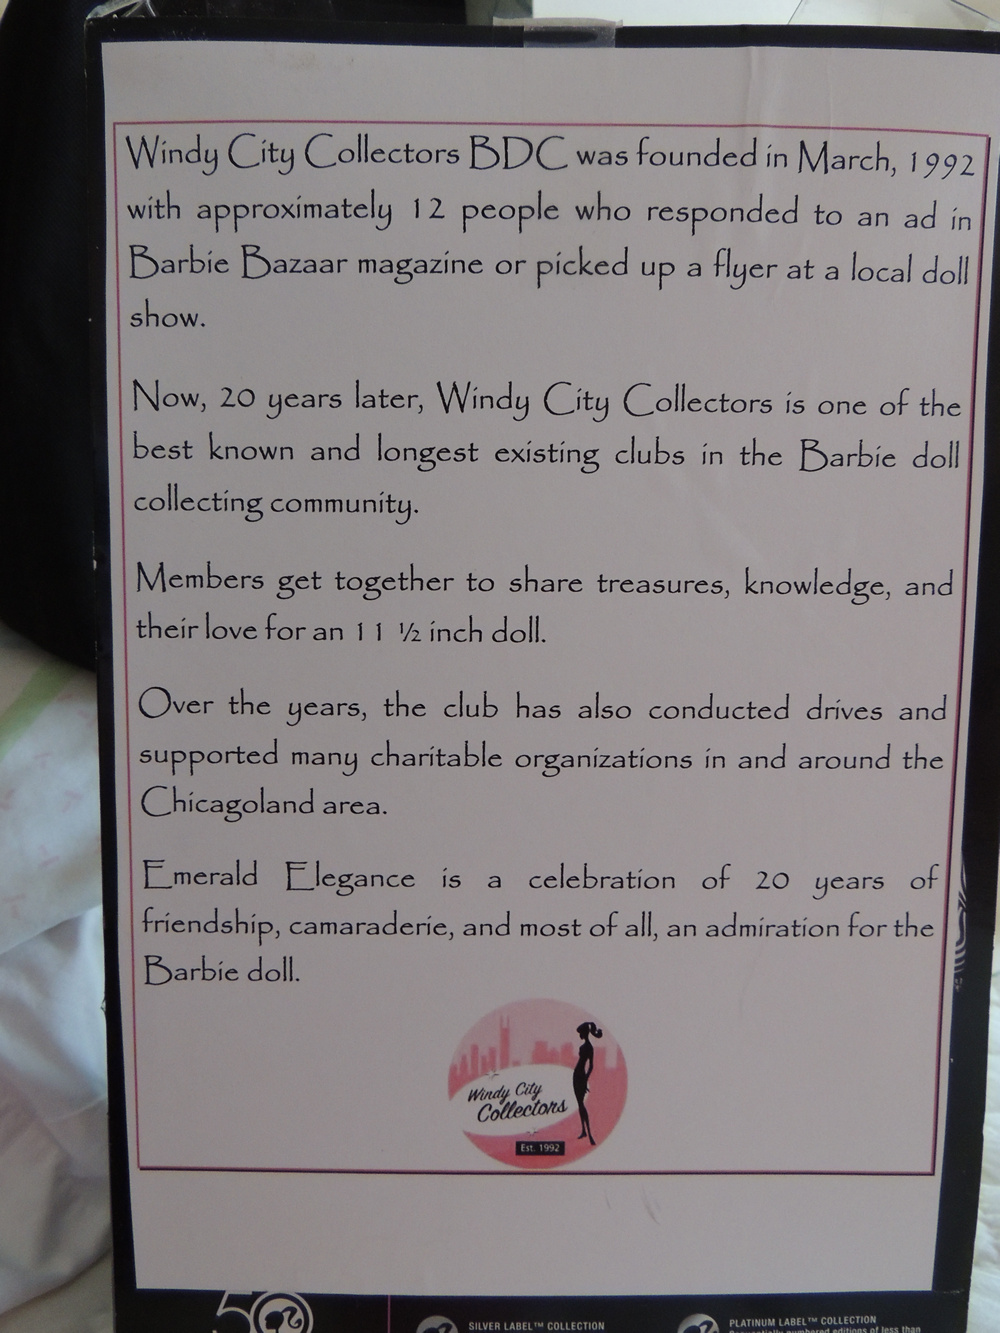 Windy City Collectors BDC was founded in March, 1992
with approximately 12 people who responded to an ad in
Barbie Bazaar magazine or picked up a flyer at a local doll
show.
Now, 20 years later, Windy City Collectors is one of the
best known and longest existing clubs in the Barbie doll
collecting community.
Members get together to share treasures, knowledge, and
their love for an 11 ½ inch doll.
Over the years, the club has also conducted drives and
supported many charitable organizations in and around the
Chicagoland area.
Emerald Elegance is a celebration of 20 years of
friendship, camaraderie, and most of all, an admiration for the
Barbie doll.
Windy City
Collectors
Est. 1992
50
SILVER LABEL™ COLLECTION
PLATINUM LABEL™ COLLECTION
numbered editions of less than